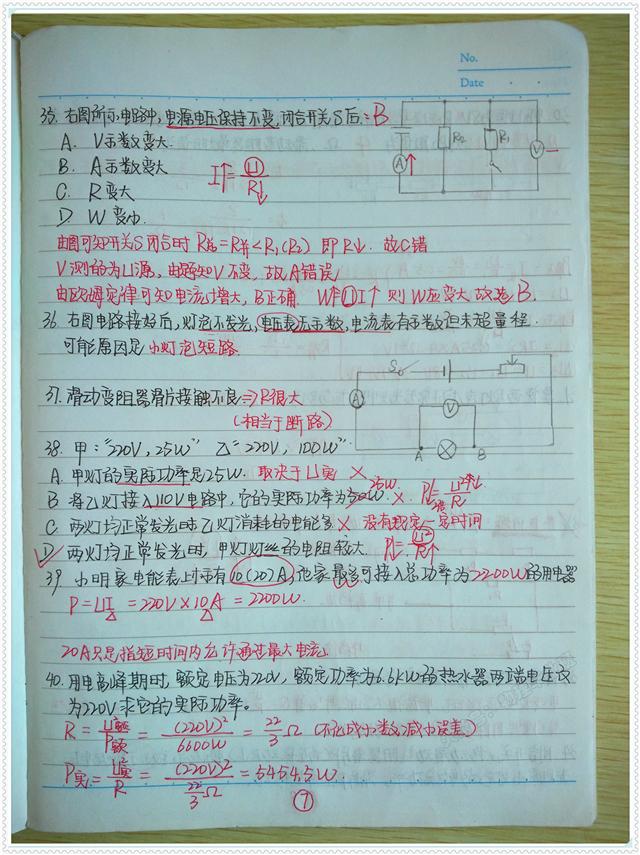 No.
Date
35. 右图所示电路中,电源电压保持不变,闭合开关S后 = B
A. V示数变大.
B. A示数变大
C. R变大
D W变小.
I↑ = U/R↓
R2
R1
A
V
由图可知开关S闭合时 R总=R并<R1(R2) 即R↓. 故C错
V测的为U源, 由题知V不变, 故A错误
由欧姆定律可知电流增大, B正确. W↑=UI↑ 则W应变大 故选B.
36. 右图电路接好后,灯泡不发光,电压表无示数,电流表有示数但未超量程.
可能原因是 小灯泡短路.
S
A
V
A
B
37. 滑动变阻器滑片接触不良⇒R很大
(相当于断路)
38. 甲:"220V, 25W" 乙="220V, 100W".
A. 甲灯的实际功率是25W. 取决于U实 ×
25W.
B 将乙灯接入110V电路中,它的实际功率为50W. ×. P实↓=U²↓/R
C 两灯均正常发光时乙灯消耗的电能多 × 没有规定一定时间
D. 两灯均正常发光时, 甲灯灯丝的电阻较大. P↓=U²/R↑
39 小明家电能表上标有10(20)A,他家最多可接入总功率为2200W的用电器
P=UI = 220V×10A = 2200W.
20A只是指短时间内允许通过最大电流.
40. 用电高峰期时, 额定电压为220V, 额定功率为6.6kW的热水器两端电压仅
为220V求它的实际功率。
R = U²额/P额 = (220V)²/6600W = 22/3 Ω (不化成小数,减小误差)
P实 = U²实/R = (220V)²/(22/3 Ω) = 5454.5W.
⑦